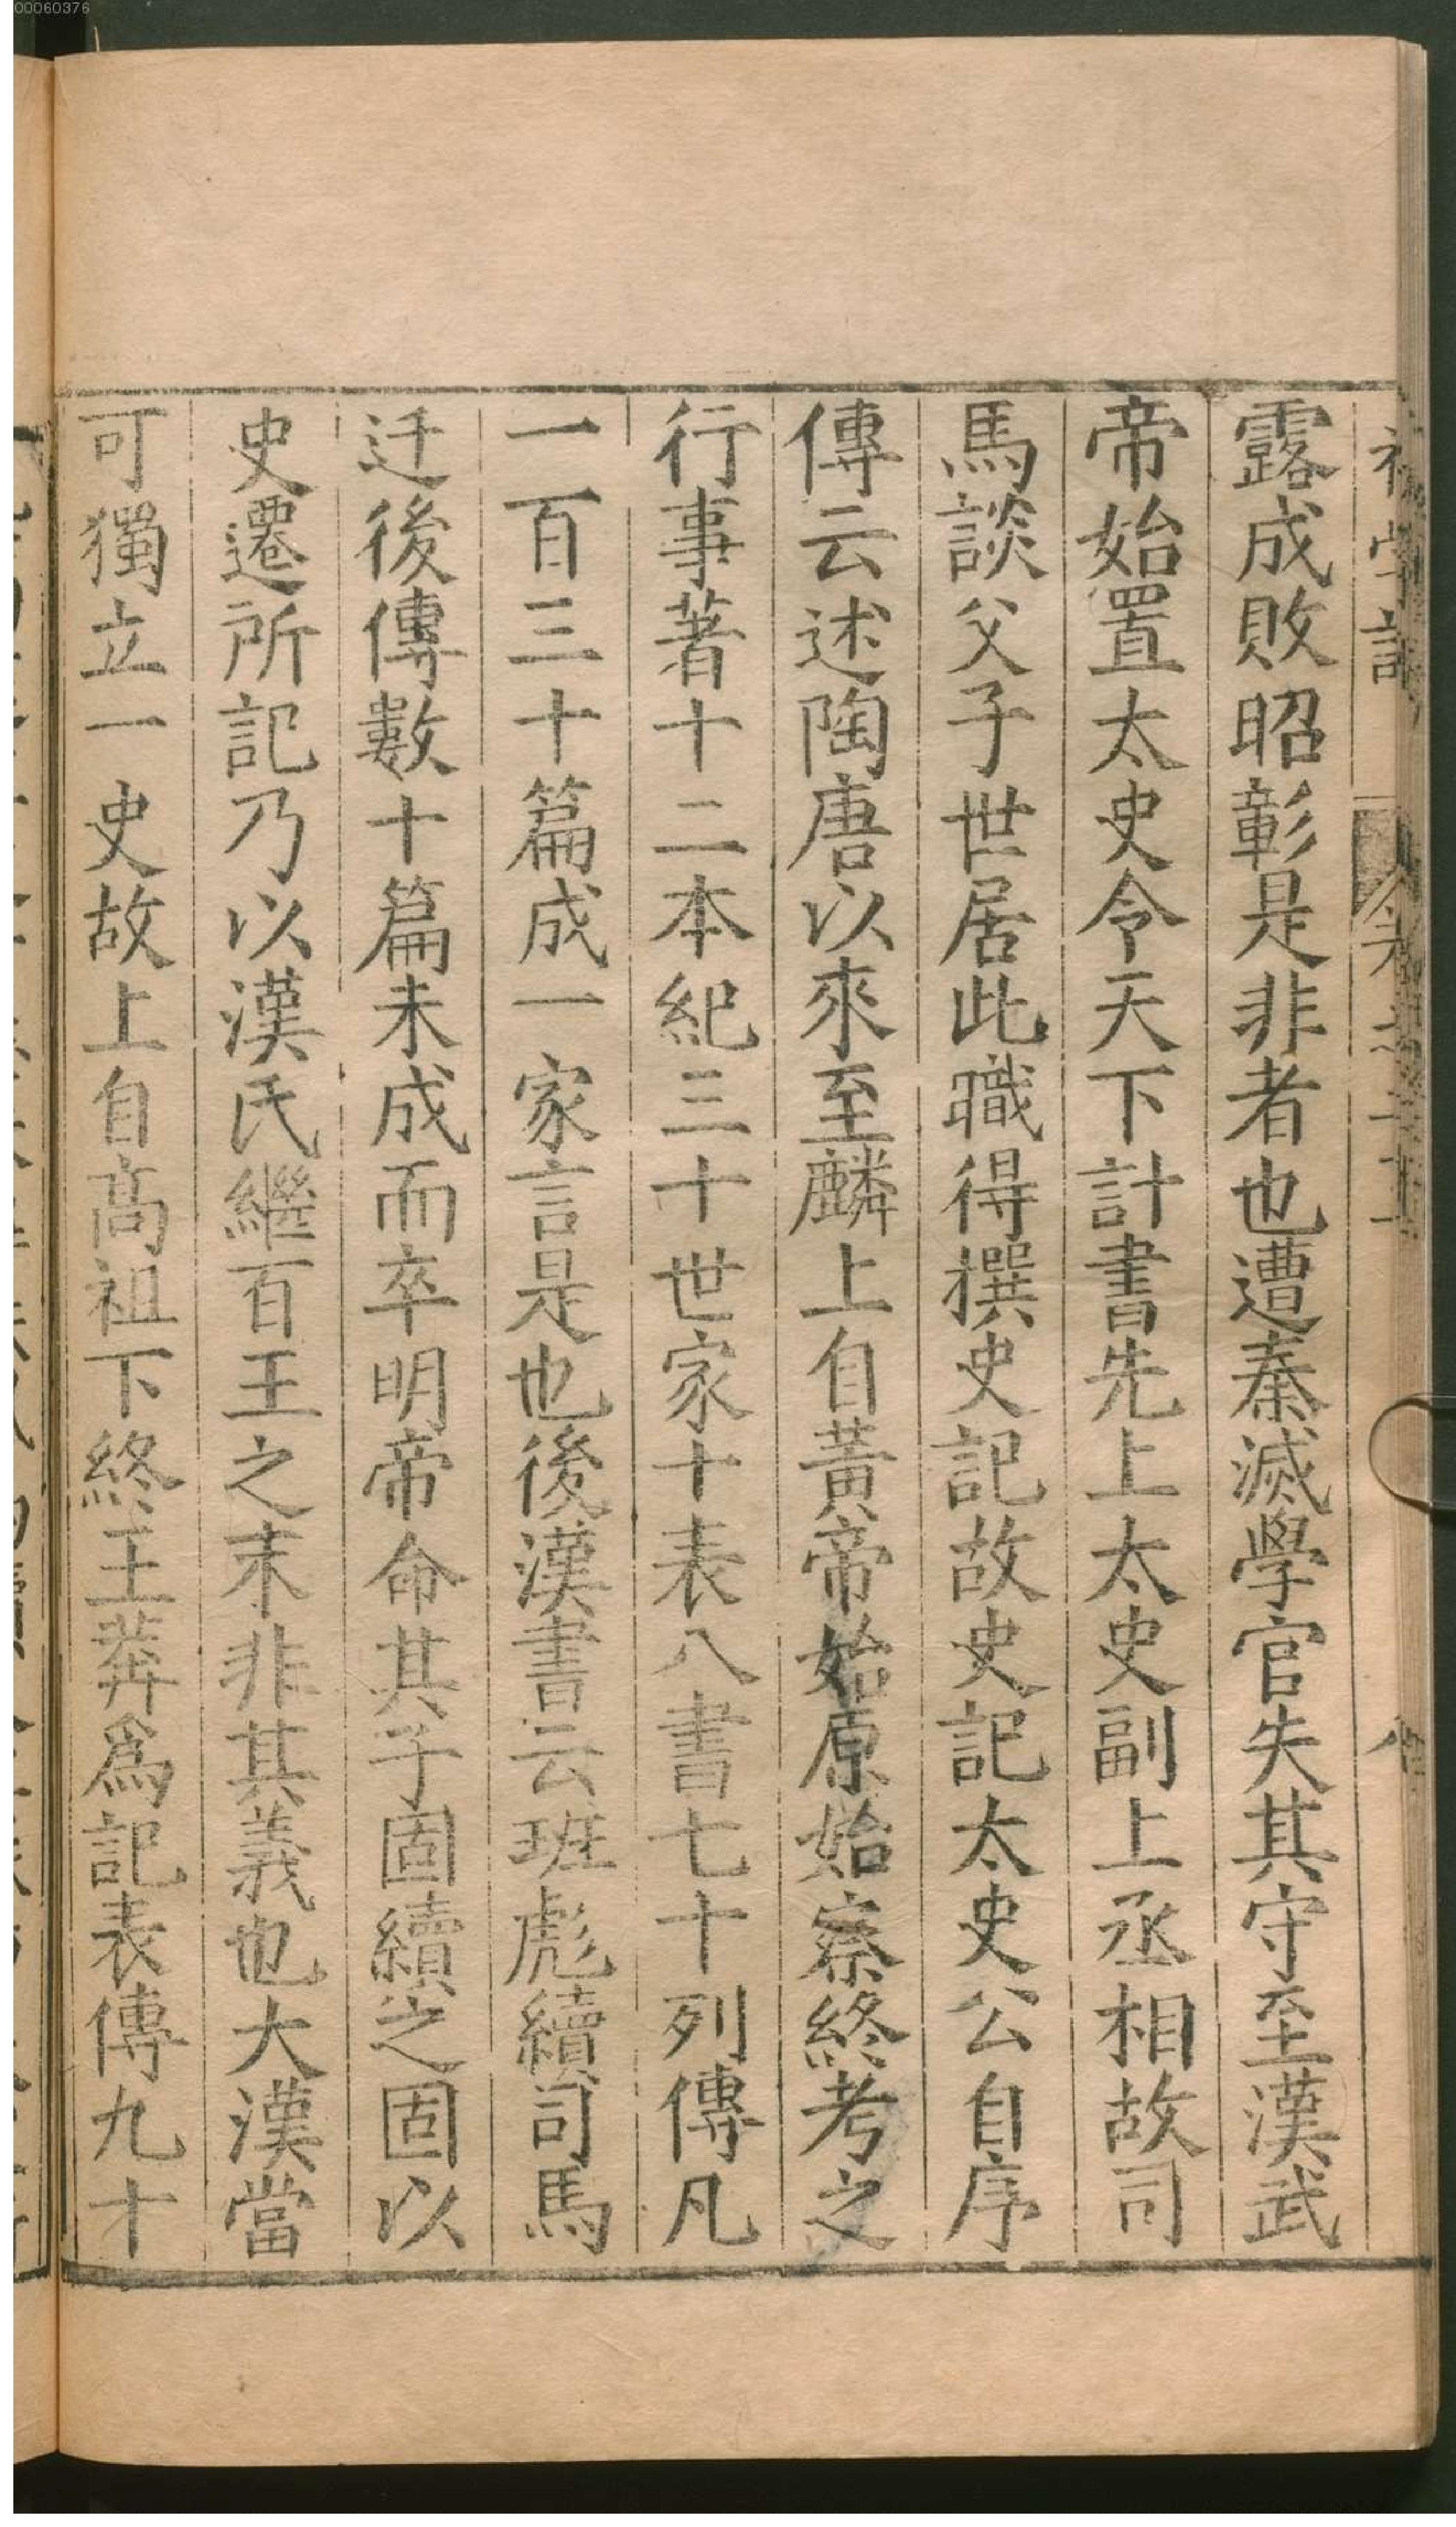 00060376
初學記 卷第二十一 八
露成敗昭彰是非者也遭秦滅學官失其守至漢武
帝始置太史令天下計書先上太史副上丞相故司
馬談父子世居此職得撰史記故史記太史公自序
傳云述陶唐以來至麟上自黃帝始原始察終考之
行事著十二本紀三十世家十表八書七十列傳凡
一百三十篇成一家言是也後漢書云班彪續司馬
迁後傳數十篇未成而卒明帝命其子固續之固以
史遷所記乃以漢氏繼百王之末非其義也大漢當
可獨立一史故上自高祖下終王莽爲記表傳九十